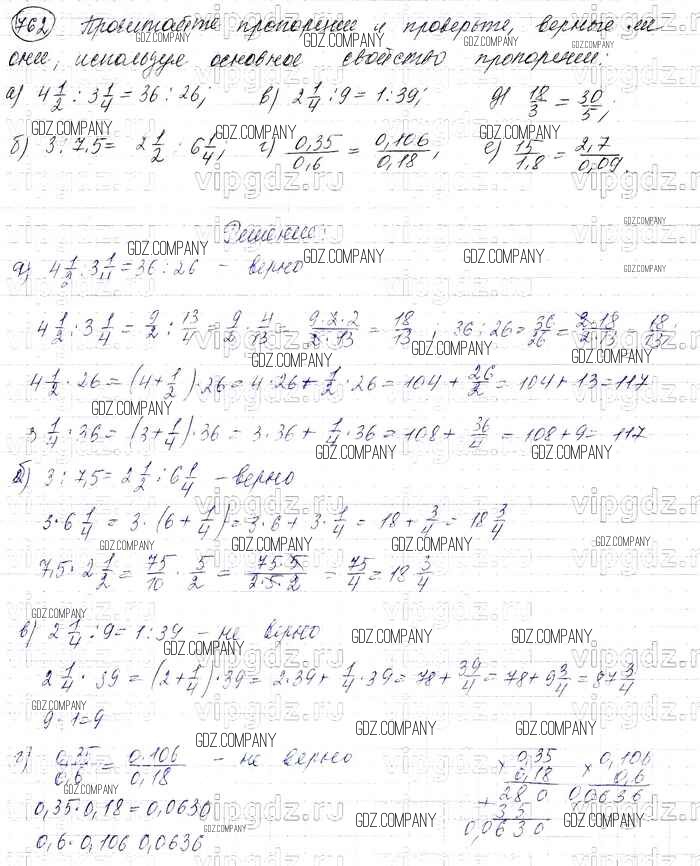 762 Прочитайте пропорции и проверьте, верные ли
они, используя основное свойство пропорции:
а) 4 1/2 : 3 1/4 = 36 : 26; в) 2 1/4 : 9 = 1 : 39; д) 18/3 = 30/5;
б) 3 : 7,5 = 2 1/2 : 6 1/4; г) 0,35/0,6 = 0,106/0,18; е) 15/1,8 = 2,7/0,09.
Решение:
а) 4 1/2 : 3 1/4 = 36 : 26 - верно
4 1/2 : 3 1/4 = 9/2 : 13/4 = 9/2 · 4/13 = 9·2·2/2·13 = 18/13; 36 : 26 = 36/26 = 2·18/2·13 = 18/13;
4 1/2 · 26 = (4 + 1/2) · 26 = 4·26 + 1/2 · 26 = 104 + 26/2 = 104 + 13 = 117
3 1/4 · 36 = (3 + 1/4) · 36 = 3·36 + 1/4 · 36 = 108 + 36/4 = 108 + 9 = 117
б) 3 : 7,5 = 2 1/2 : 6 1/4 - верно
3·6 1/4 = 3·(6 + 1/4) = 3·6 + 3·1/4 = 18 + 3/4 = 18 3/4
7,5·2 1/2 = 75/10 · 5/2 = 75·5/2·5·2 = 75/4 = 18 3/4
в) 2 1/4 : 9 = 1 : 39 - не вірно
2 1/4 · 39 = (2 + 1/4) · 39 = 2·39 + 1/4 · 39 = 78 + 39/4 = 78 + 9 3/4 = 87 3/4
9·1=9
г) 0,35/0,6 = 0,106/0,18 - не верно
0,35·0,18 = 0,0630
0,6·0,106 0,0636
× 0,35 × 0,106
0,18 0,6
+ 280 0,0636
35
0,0630
GDZ.COMPANY
vipgdz.ru